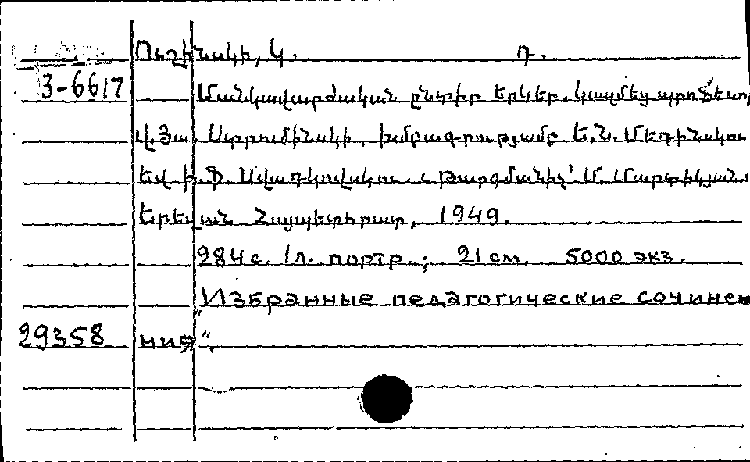 Ուշինսկի, Կ. Դ.
3-6617 Մանկավարժական ընտիր երկեր. Կազմեց պրոֆեսոր
Վ.Յա. Ստրումինսկի. խմբագրությամբ Ե.Ն. Մեդինսկու
եվ Ի.Ֆ. Սվադկովսկու. Թարգմանիչ՝ Մ. Մարտիկյան.
Երեվան Հայպետհրատ, 1949.
984 с. 1л. портр.; 21 см. 5000 экз.
"Избранные педагогические сочине
29358 ния".